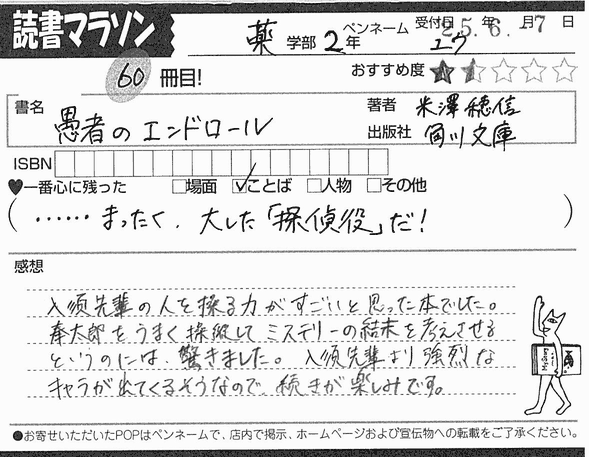 読書マラソン
薬 学部 2年
ペンネーム ユウ
受付日 25年 6.月 7日
60 冊目!
おすすめ度
書名 愚者のエンドロール
著者 米澤穂信
出版社 角川文庫
ISBN
♥一番心に残った □場面 ☑ことば □人物 □その他
(……まったく、大した「探偵役」だ!)
感想
入須先輩の人を操る力がすごいと思った本でした。
奉太郎をうまく操縦してミステリーの結末を考えさせる
というのには、驚きました。入須先輩より強烈な
キャラが出てくるそうなので、続きが楽しみです。
●お寄せいただいたPOPはペンネームで、店内で掲示、ホームページおよび宣伝物への転載をご了承ください。